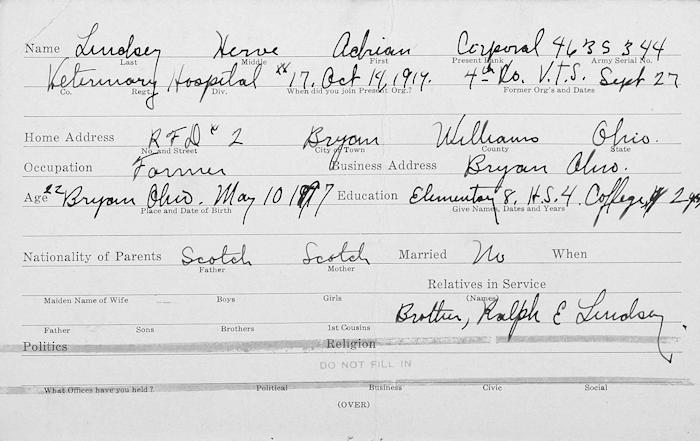 Name Lindsey Herve Adrian Corporal 4635344
Last Middle First Present Rank Army Serial No.
Veterinary Hospital #17. Oct 14, 1917. 4th Co. V.T.S. Sept 27
Co. Regt. Div. When did you join Present Org.? Former Org's and Dates
Home Address RFD # 2 Bryan Williams Ohio.
No. and Street City or Town County State
Occupation Farmer Business Address Bryan Ohio.
Age 22 Bryan Ohio. May 10 Education Elementary 8, H.S. 4. College, 2 yrs
Place and Date of Birth Give Names, Dates and Years
Nationality of Parents Scotch Scotch Married No When
Father Mother
Relatives in Service
Maiden Name of Wife Boys Girls (Names)
Brother, Ralph E Lindsey
Father Sons Brothers 1st Cousins
Politics Religion
DO NOT FILL IN
What Offices have you held? Political Business Civic Social
(OVER)